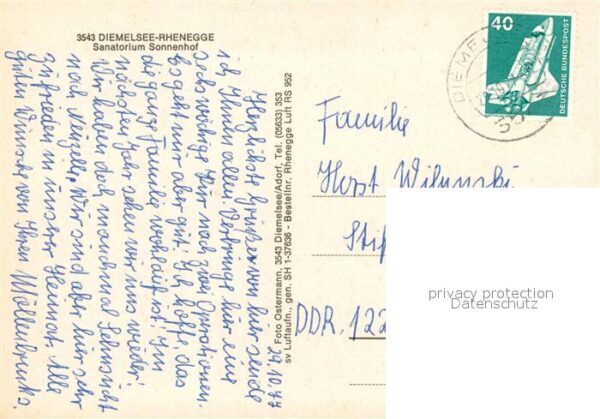 3543 DIEMELSEE-RHENEGGE
Sanatorium Sonnenhof
27.10.77
Herzlichste Grüße von hier sende
ich Ihnen allen. Verbringe hier eine
sechswöchige Kur nach zwei Operationen.
Es geht mir aber gut. Ich hoffe, das
die ganze Familie wohlauf ist! Im
nächsten Jahr sehen wir uns wieder!
Wir haben doch manchmal Sehnsucht
nach. Wir sind aber hier sehr
zufrieden in unserer Heimat. Alle
guten Wünsche von Ihren
Foto Ostermann, 3543 Diemelsee/Adorf, Tel. (05633) 353
sv Luftaufn., gen. SH 1-37636 - Bestellnr. Rhenegge Luft RS 952
40
DEUTSCHE BUNDESPOST
DIEMEL
Familie
Horst
DDR. 122
privacy protection
Datenschutz